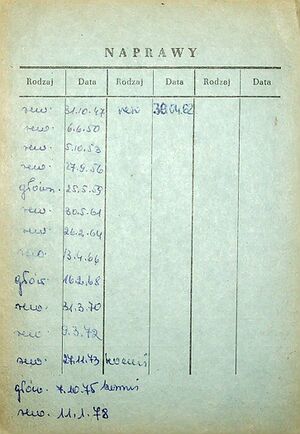 NAPRAWY
Rodzaj Data Rodzaj Data Rodzaj Data
rew. 31.10.47 rew 30.04.82
rew. 6.6.50
rew. 5.10.53
rew. 27.9.56
główn. 25.5.59
rew. 30.5.61
rew. 26.2.64
rew. 13.4.66
główn. 16.2.68
rew. 31.3.70
rew. 9.3.72
rew. 27.11.73
główn. 7.10.75
rew. 11.1.78